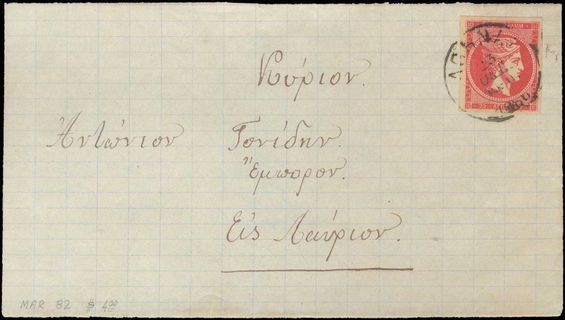 Κύριον.
Ἀντώνιον Γονίδην
Ἔμπορον.
Εἰς Λαύριον.
MAR 82 $ 4.00